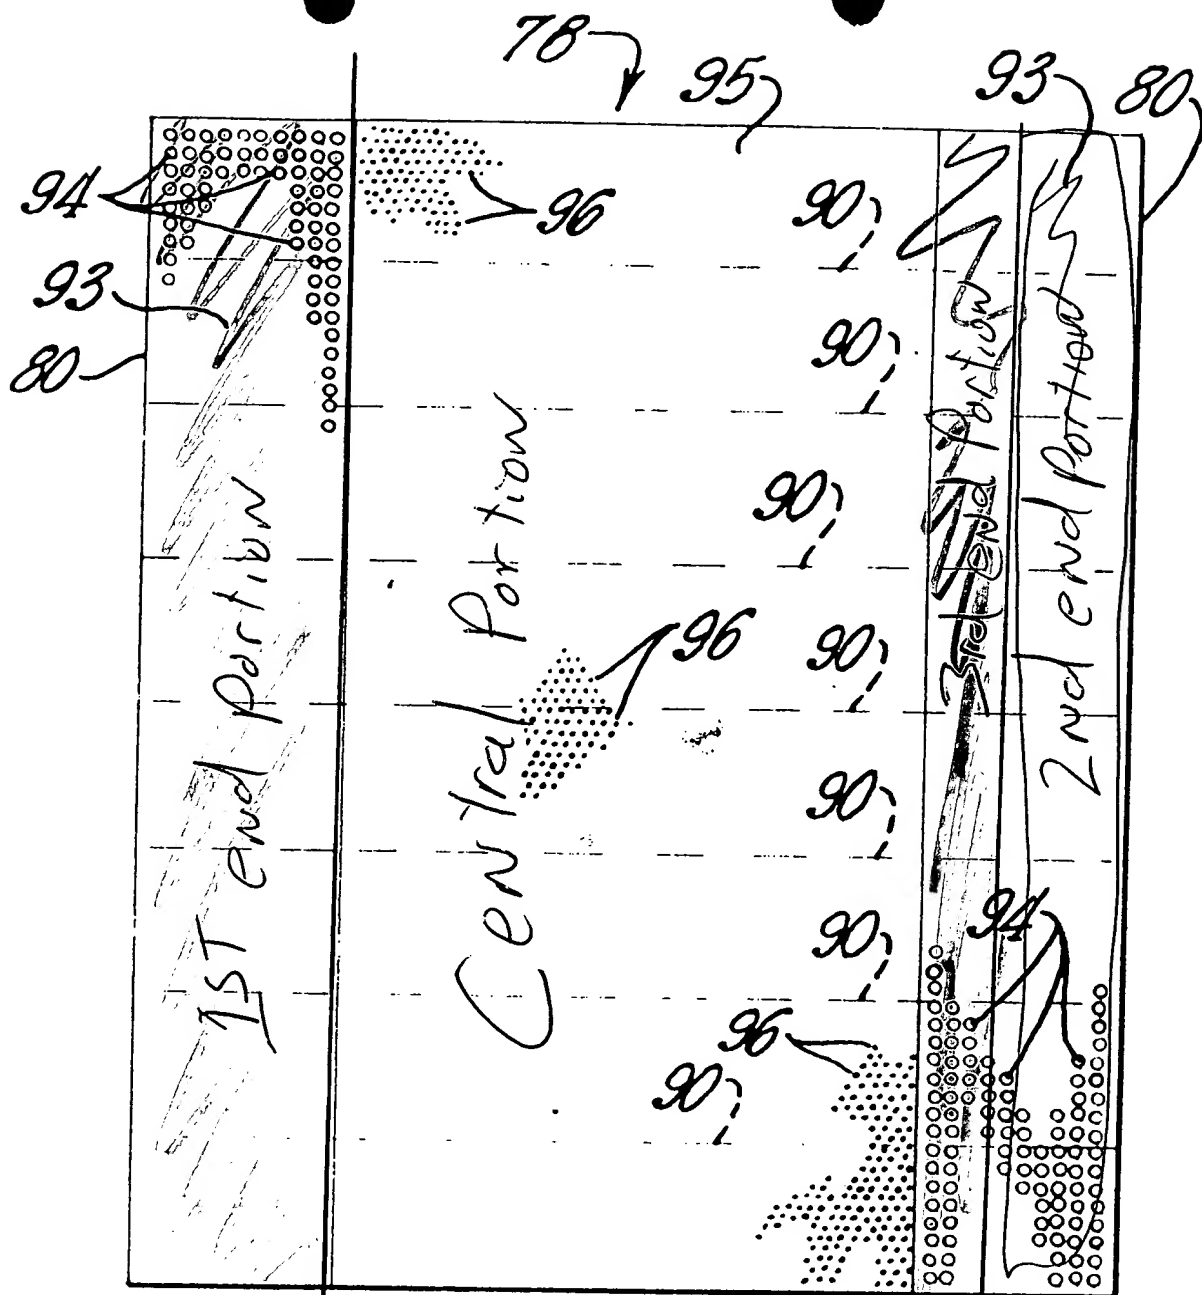 78
95
93
80
94
96
90
93
90
80
90
96
90
90
94
90
96
90
1ST end Portion
Central Portion
3rd end Portion
2nd end Portion